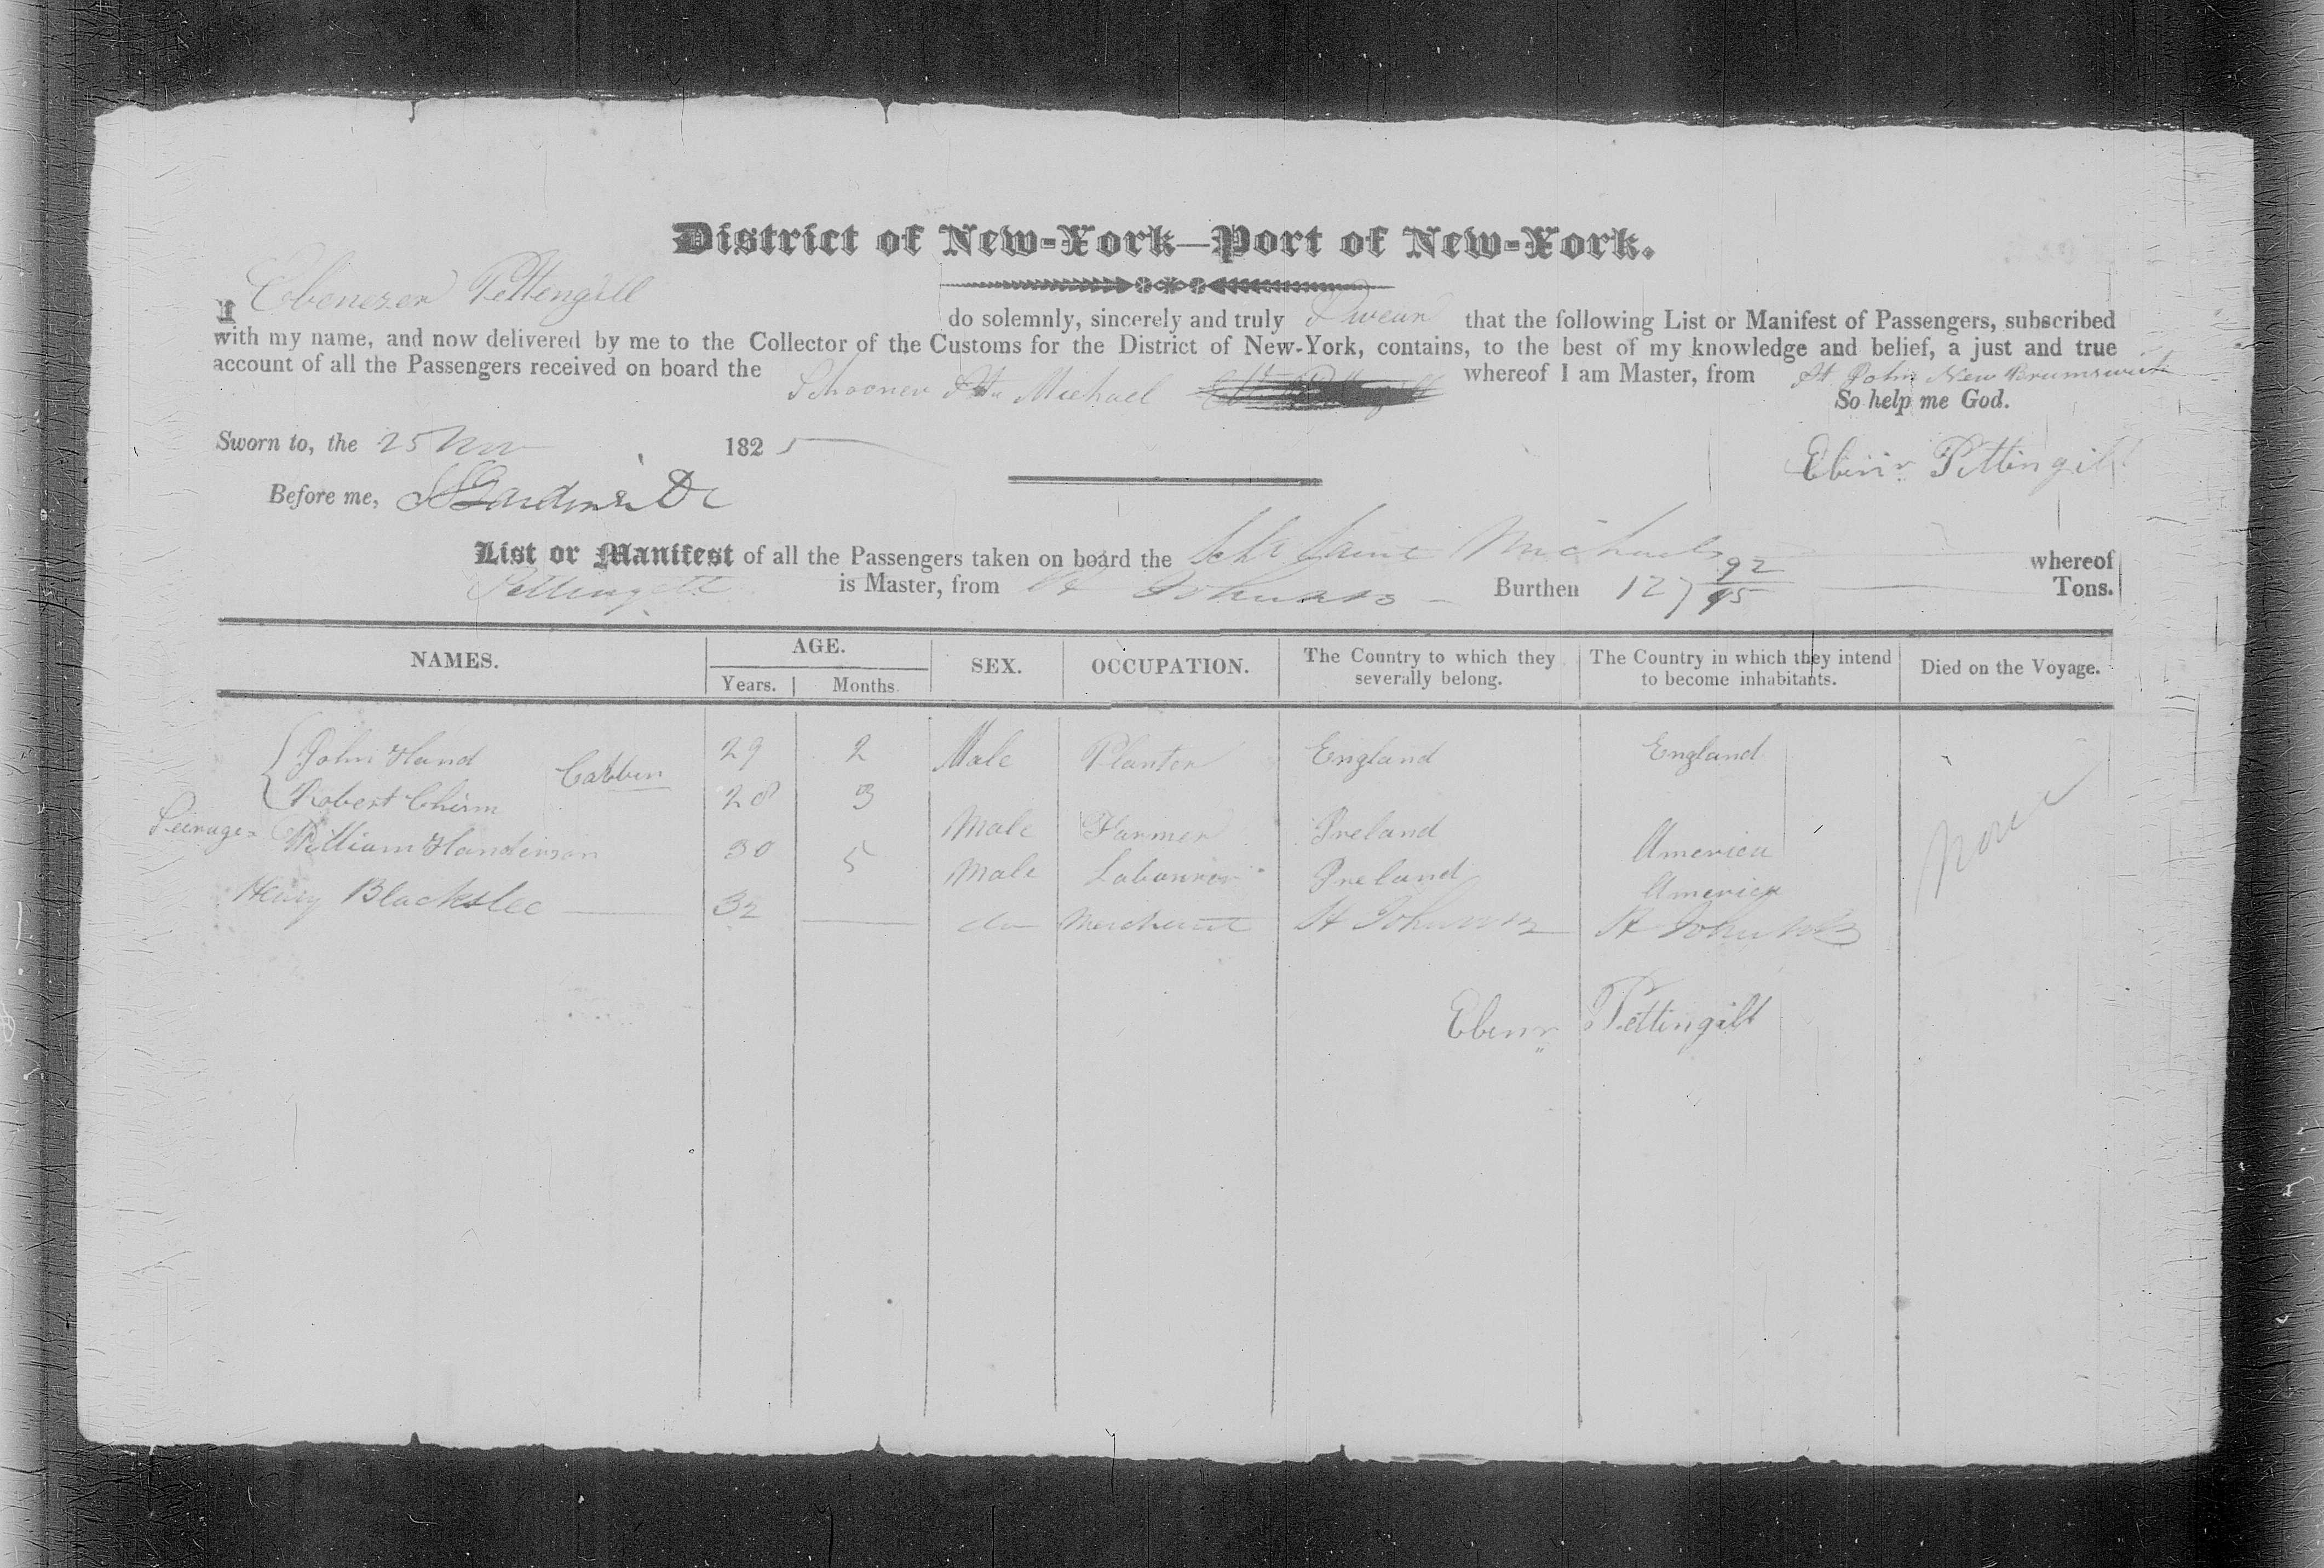 District of New-York—Port of New-York.
I Ebenezer Pettengill do solemnly, sincerely and truly Swear that the following List or Manifest of Passengers, subscribed
with my name, and now delivered by me to the Collector of the Customs for the District of New-York, contains, to the best of my knowledge and belief, a just and true
account of all the Passengers received on board the Schooner Michael whereof I am Master, from St John New Brunswick
So help me God.
Sworn to, the 25 Nov 1825
Ebenr Pettingill
Before me,
List or Manifest of all the Passengers taken on board the Schr Saint Michael whereof
Pettingill is Master, from St Johns Burthen 127 92/95 Tons.
NAMES. AGE. SEX. OCCUPATION. The Country to which they severally belong. The Country in which they intend to become inhabitants. Died on the Voyage.
Years. Months.
John Hand Cabbin 29 2 Male Planter England England
Robert Chirm 28 3 Male Farmer Ireland America
William Handerson 30 5 Male Labourer Ireland America
Henry Blackslee 32 do Merchant St John NB St John NB
None
Ebenr Pettingill